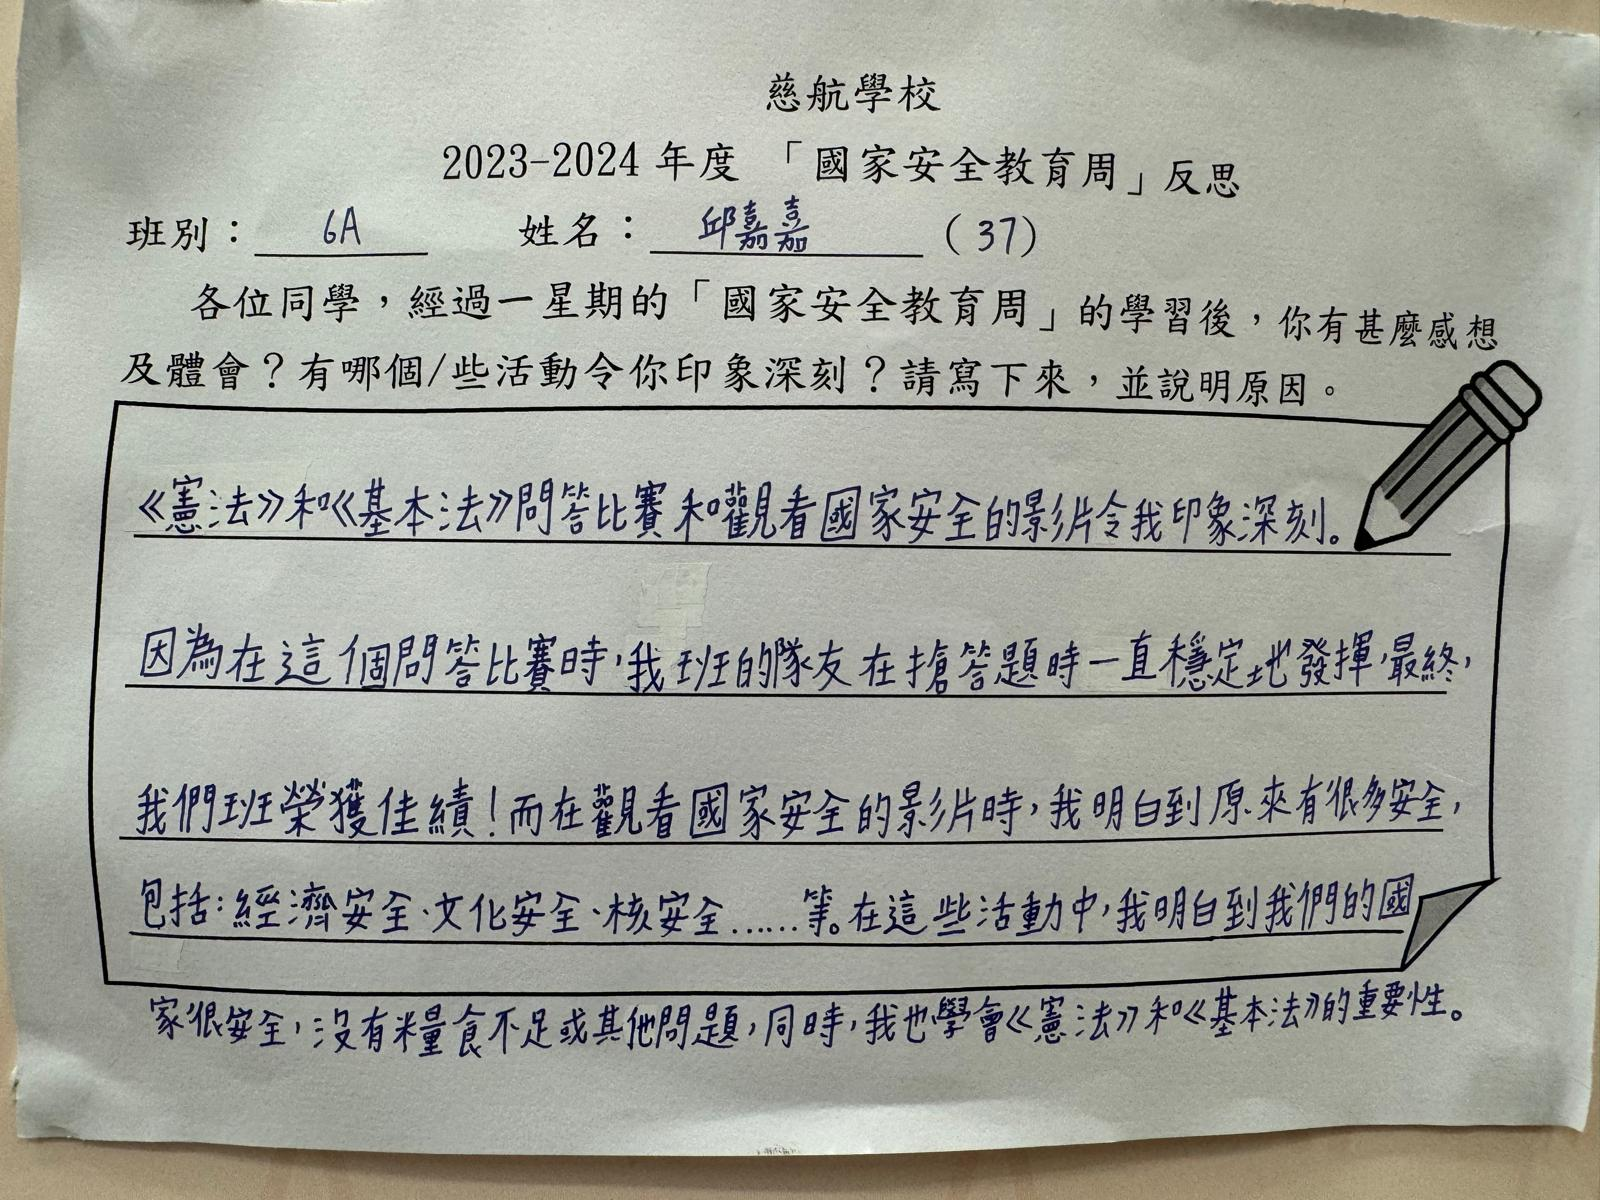 慈航學校
2023-2024 年度 「國家安全教育周」反思
班別： 6A 姓名： 邱嘉嘉 (37)
各位同學，經過一星期的「國家安全教育周」的學習後，你有甚麼感想
及體會？有哪個/些活動令你印象深刻？請寫下來，並說明原因。
《憲法》和《基本法》問答比賽和觀看國家安全的影片令我印象深刻。
因為在這個問答比賽時，我班的隊友在搶答題時一直穩定地發揮，最終，
我們班榮獲佳績！而在觀看國家安全的影片時，我明白到原來有很多安全，
包括：經濟安全、文化安全、核安全……等。在這些活動中，我明白到我們的國
家很安全，沒有糧食不足或其他問題，同時，我也學會《憲法》和《基本法》的重要性。